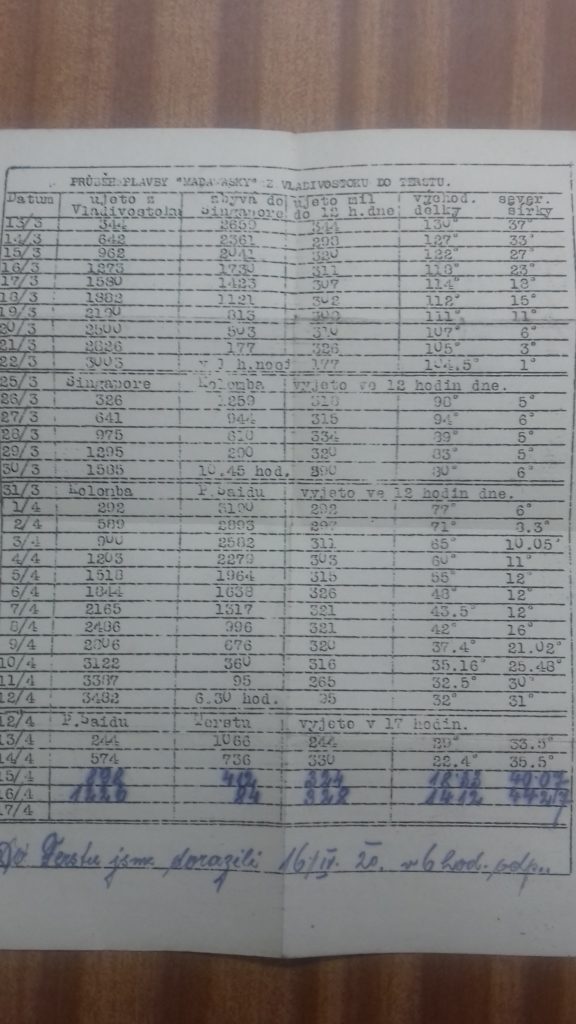 PRŮBĚH PLAVBY "MADAWASKY" Z VLADIVOSTOKU DO TERSTU.
Datum ujeto z Vladivostoku zbyva do Singapore ujeto mil do 12 h.dne vychod. delky sever. sirky
13/3 344 2659 344 130° 37°
14/3 642 2361 298 127° 33°
15/3 962 2041 320 122° 27°
16/3 1273 1730 311 118° 23°
17/3 1580 1423 307 114° 18°
18/3 1882 1121 302 112° 15°
19/3 2190 813 308 111° 11°
20/3 2500 503 310 107° 6°
21/3 2826 177 326 105° 3°
22/3 3003 v 1 h.noci 177 104.5° 1°
25/3 Singapore Kolomba vyjeto ve 12 hodin dne.
26/3 326 1259 98° 5°
27/3 641 944 315 94° 6°
28/3 975 610 334 89° 5°
29/3 1295 290 320 83° 5°
30/3 1585 10.45 hod. 290 80° 6°
31/3 Kolomba P.Saidu vyjeto ve 12 hodin dne.
1/4 292 3190 292 77° 6°
2/4 589 2893 297 71° 8.3°
3/4 900 2582 311 65° 10.05°
4/4 1203 2279 303 60° 11°
5/4 1518 1964 315 55° 12°
6/4 1844 1638 326 48° 12°
7/4 2165 1317 321 43.5° 12°
8/4 2486 996 321 42° 16°
9/4 2806 676 320 37.4° 21.02°
10/4 3122 360 316 35.16° 25.48°
11/4 3387 95 265 32.5° 30°
12/4 3482 6.30 hod. 95 32° 31°
12/4 P.Saidu Terstu vyjeto v 17 hodin.
13/4 244 1066 244 29° 33.5°
14/4 574 736 330 22.4° 35.5°
15/4 898 412 324 40.07
16/4 1226 84 328 1412
17/4
Do Terstu jsme dorazili 16/IV. 20. v 6 hod. odp.